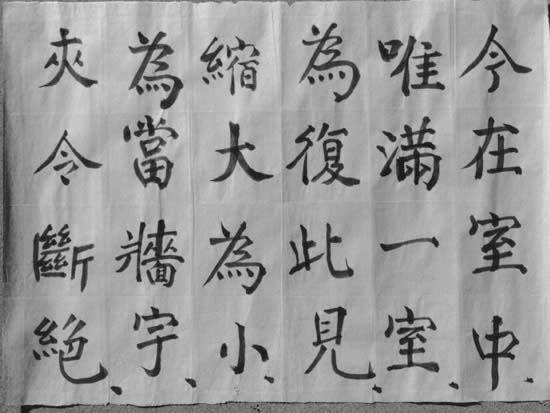 今在室中、
唯滿一室、
為復此見、
縮大為小、
為當牆宇、
夾令斷絕、